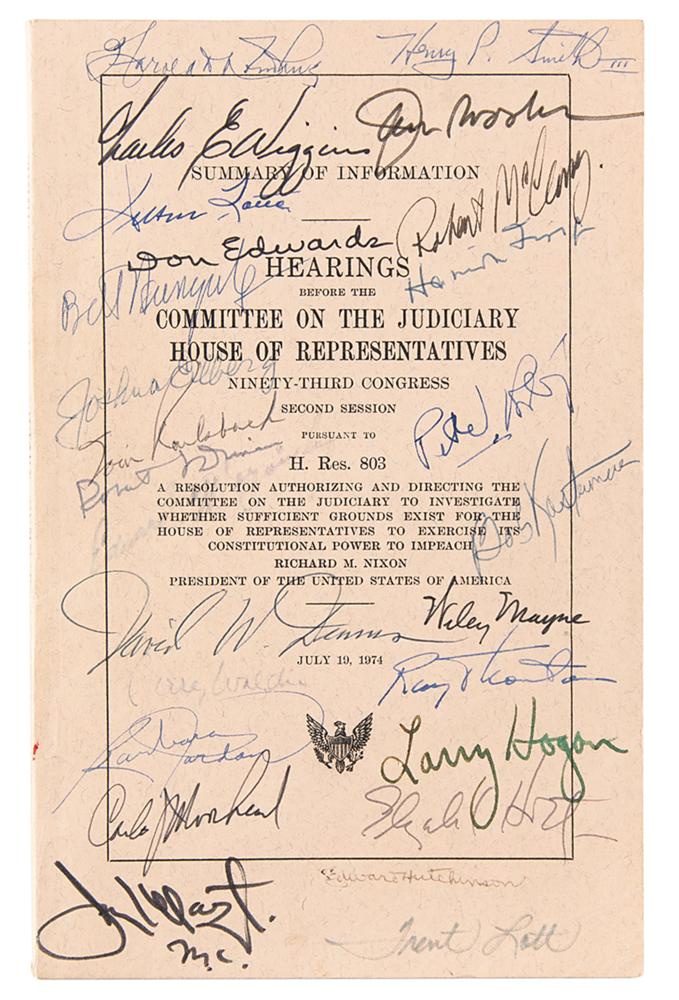 Henry P. Smith III
Charles E Wiggins
SUMMARY OF INFORMATION
Robert McClory.
Don Edwards
HEARINGS
BEFORE THE
COMMITTEE ON THE JUDICIARY
HOUSE OF REPRESENTATIVES
Joshua Eilberg
NINETY-THIRD CONGRESS
SECOND SESSION
PURSUANT TO
Tom Railsback
H. Res. 803
A RESOLUTION AUTHORIZING AND DIRECTING THE
COMMITTEE ON THE JUDICIARY TO INVESTIGATE
WHETHER SUFFICIENT GROUNDS EXIST FOR THE
HOUSE OF REPRESENTATIVES TO EXERCISE ITS
CONSTITUTIONAL POWER TO IMPEACH
Bob Kastenmeier
RICHARD M. NIXON
PRESIDENT OF THE UNITED STATES OF AMERICA
Wiley Mayne
David W. Dennis
JULY 19, 1974
Ray Thornton
Barbara Jordan
Larry Hogan
Carlos J Moorhead
Edward Hutchinson
M.C.
Trent Lott